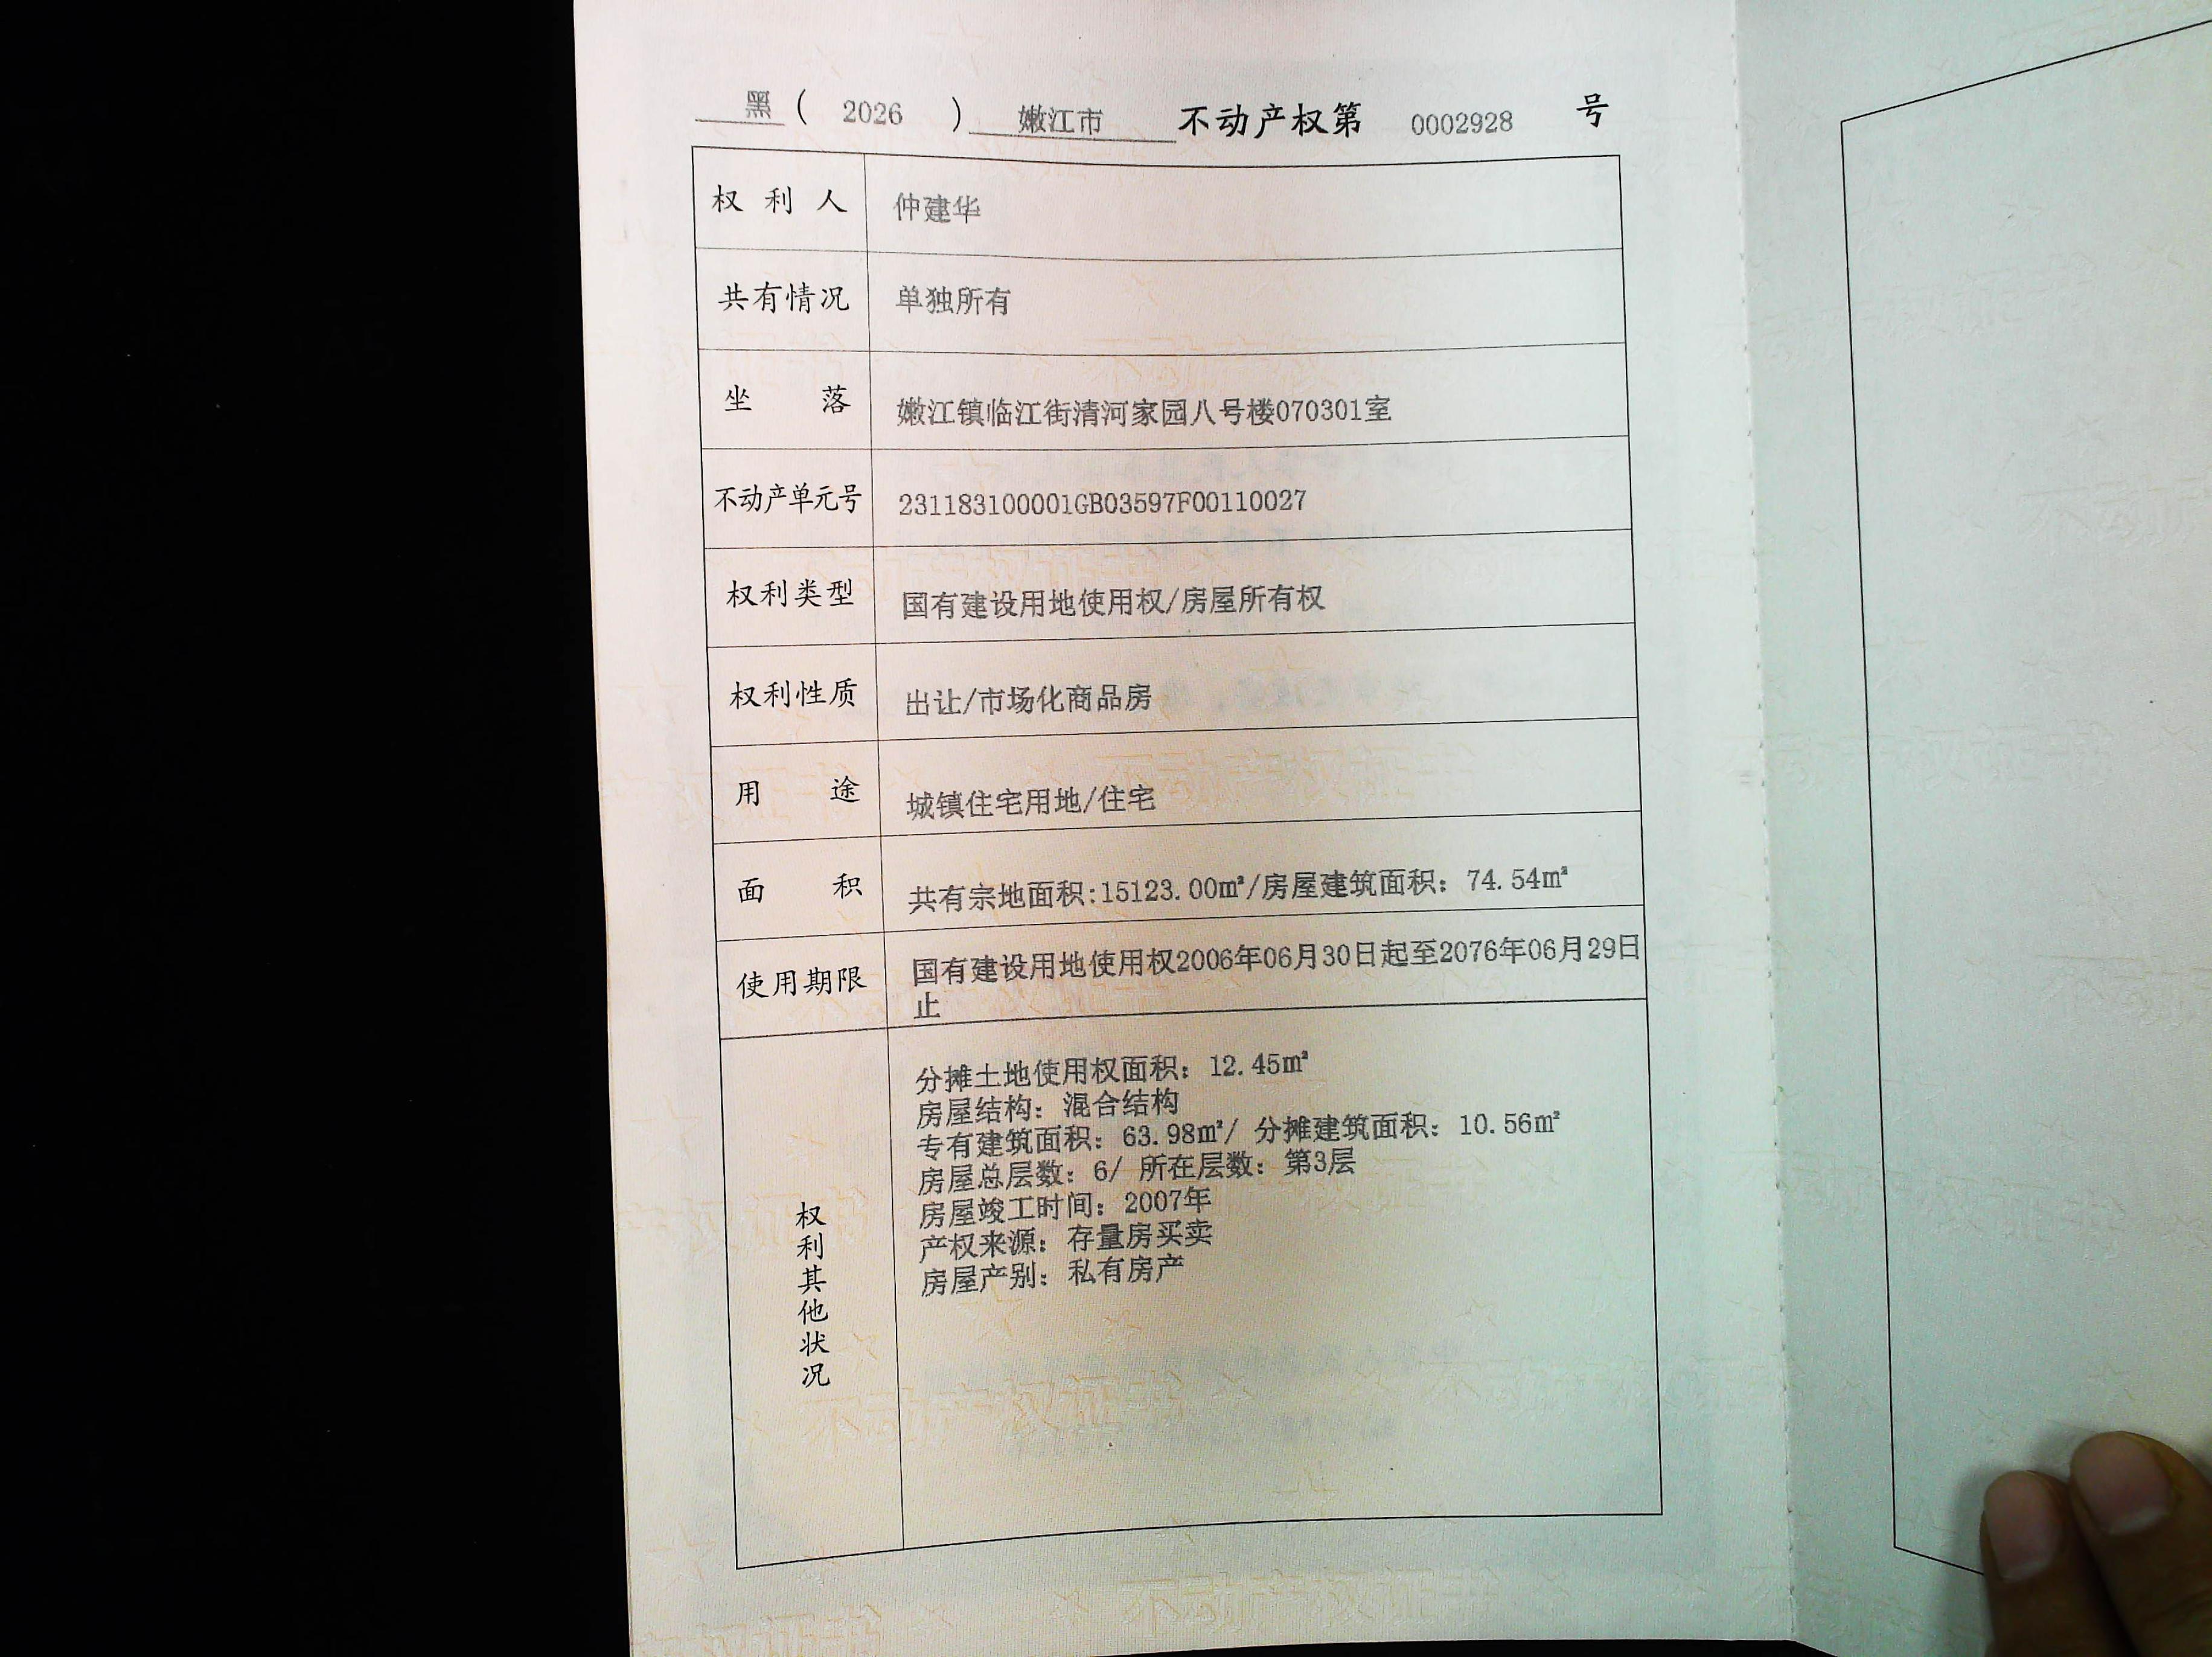 黑（ 2026 ）嫩江市 不动产权第 0002928 号
权利人 仲建华
共有情况 单独所有
坐落 嫩江镇临江街清河家园八号楼070301室
不动产单元号 231183100001GB03597F00110027
权利类型 国有建设用地使用权/房屋所有权
权利性质 出让/市场化商品房
用途 城镇住宅用地/住宅
面积 共有宗地面积:15123.00㎡/房屋建筑面积：74.54㎡
使用期限 国有建设用地使用权2006年06月30日起至2076年06月29日
止
权利其他状况
分摊土地使用权面积：12.45㎡
房屋结构：混合结构
专有建筑面积：63.98㎡/ 分摊建筑面积：10.56㎡
房屋总层数：6/ 所在层数：第3层
房屋竣工时间：2007年
产权来源：存量房买卖
房屋产别：私有房产